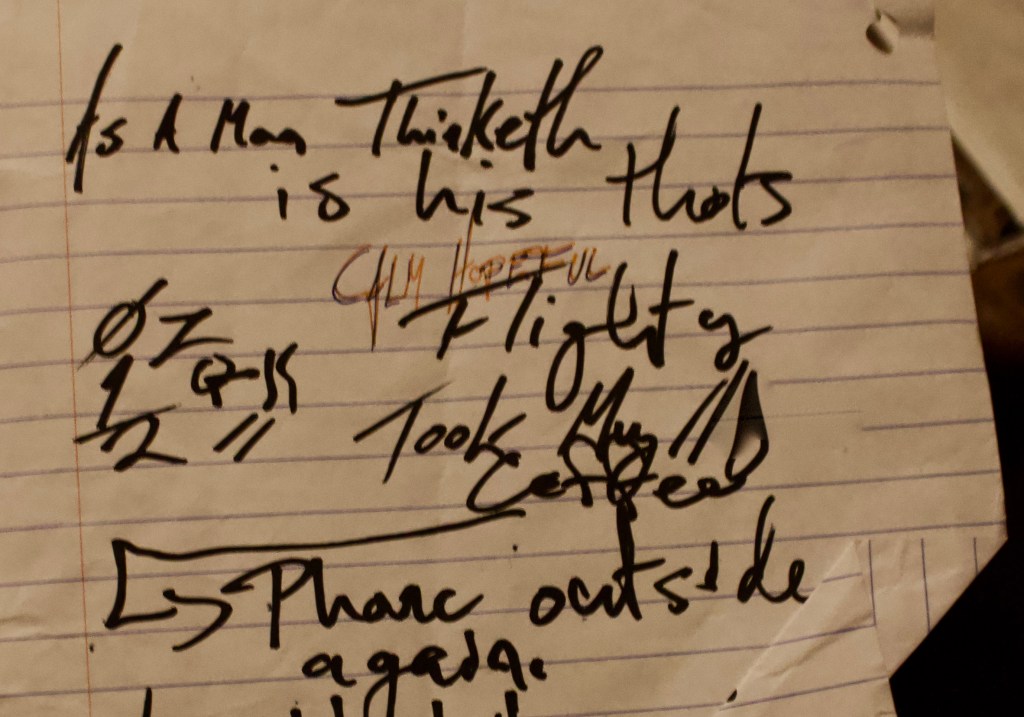 As A Man Thinketh
is his thots
CALM HOPEFUL
Flighty
1
2 " Took My //
Coffee
Phone outside
again.